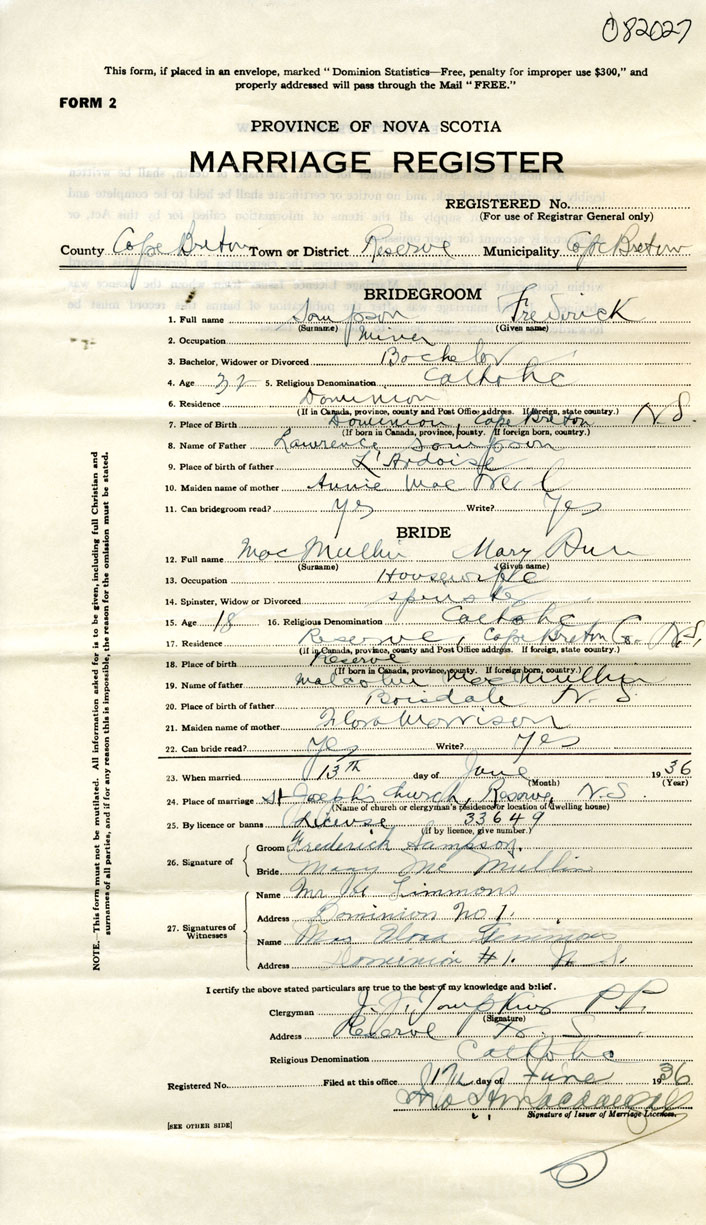 082027
This form, if placed in an envelope, marked "Dominion Statistics—Free, penalty for improper use $300," and
properly addressed will pass through the Mail "FREE."
FORM 2
PROVINCE OF NOVA SCOTIA
MARRIAGE REGISTER
REGISTERED No.
(For use of Registrar General only)
County Cape Breton Town or District Reserve Municipality Cape Breton
BRIDEGROOM
1. Full name Sampson Frederick
(Surname) (Given name)
2. Occupation Miner
3. Bachelor, Widower or Divorced Bachelor
4. Age 32 5. Religious Denomination Catholic
6. Residence Dominion
(If in Canada, province, county and Post Office address. If foreign, state country.)
7. Place of Birth Dominion, Cape Breton N.S.
(If born in Canada, province, county. If foreign born, country.)
8. Name of Father Lawrence Sampson
9. Place of birth of father L'Ardoise
10. Maiden name of mother Annie Mac
11. Can bridegroom read? Yes Write? Yes
BRIDE
12. Full name MacMullin Mary Ann
(Surname) (Given name)
13. Occupation Housework
14. Spinster, Widow or Divorced spinster
15. Age 18 16. Religious Denomination Catholic
17. Residence Reserve, Cape Breton Co. N.S.
(If in Canada, province, county and Post Office address. If foreign, state country.)
18. Place of birth Reserve
(If born in Canada, province, county. If foreign born, country.)
19. Name of father Malcolm MacMullin
20. Place of birth of father Boisdale N.S.
21. Maiden name of mother Flora Morrison
22. Can bride read? Yes Write? Yes
23. When married 13th day of June 1936
(Month) (Year)
24. Place of marriage St Joseph's Church, Reserve, N.S.
(Name of church or clergyman's residence or location of dwelling house)
25. By licence or banns License 33649
(If by licence, give number.)
26. Signature of
Groom Frederick Sampson.
Bride Mary Mc Mullin
27. Signatures of Witnesses
Name Mr Timmons
Address Dominion No 1.
Name Timmons
Address Dominion #1. N.S.
I certify the above stated particulars are true to the best of my knowledge and belief.
Clergyman J. J. Tompkins P.P.
(Signature)
Address Reserve N.S.
Religious Denomination Catholic
Registered No. Filed at this office day of June 1936
Signature of Issuer of Marriage Licences.
[SEE OTHER SIDE]
NOTE.—This form must not be mutilated. All information asked for is to be given, including full Christian and
surnames of all parties, and if for any reason this is impossible, the reason for the omission must be stated.